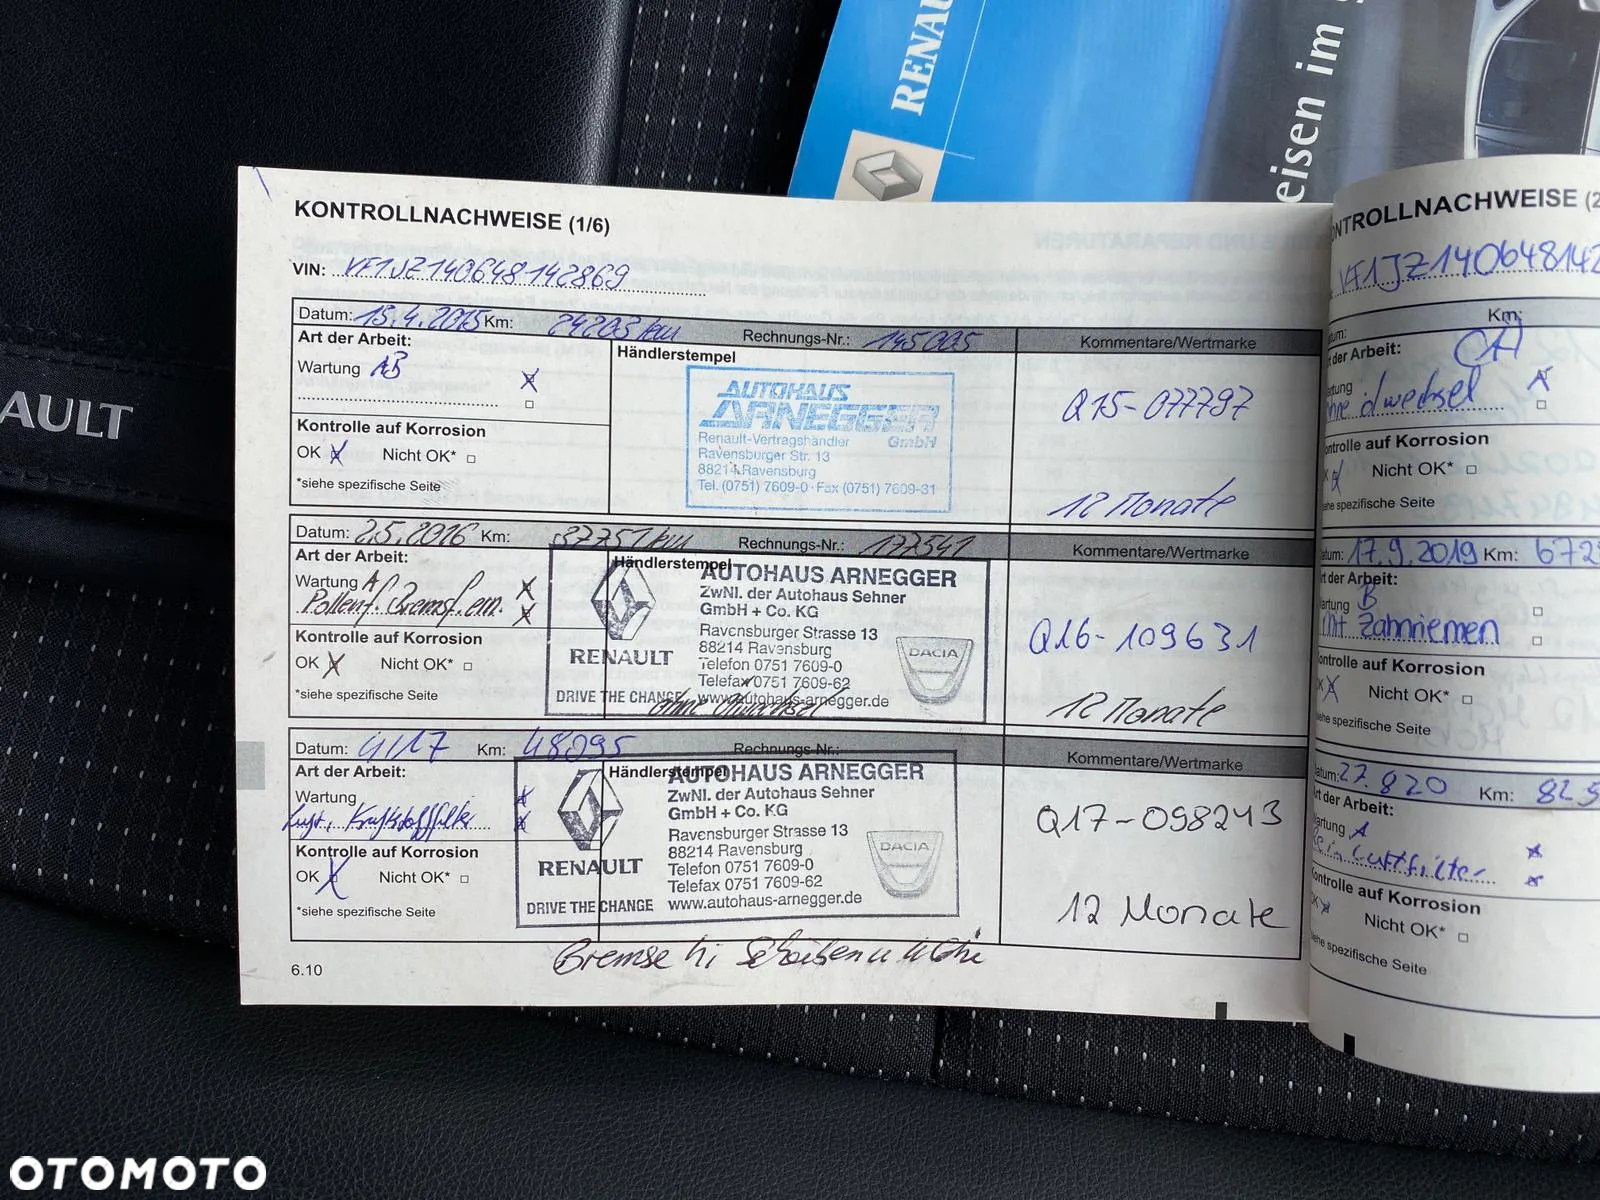 RENAU
eisen im
AULT
KONTROLLNACHWEISE (1/6)
VIN: VF1JZ140648142869
Datum: 15.4.2015 Km: 24203 km Rechnungs-Nr.: 145005
Kommentare/Wertmarke
Art der Arbeit:
Händlerstempel
Wartung AB
AUTOHAUS
ARNEGGER
GmbH
Renault-Vertragshändler
Ravensburger Str. 13
88214 Ravensburg
Tel. (0751) 7609-0 · Fax (0751) 7609-31
Q15-077797
12 Monate
Kontrolle auf Korrosion
OK Nicht OK*
*siehe spezifische Seite
Datum: 2.5.2016 Km: 37751 km Rechnungs-Nr.: 177541
Kommentare/Wertmarke
Art der Arbeit:
Händlerstempel
Wartung A
Pollenf. Bremsf. ern.
AUTOHAUS ARNEGGER
ZwNl. der Autohaus Sehner
GmbH + Co. KG
Ravensburger Strasse 13
88214 Ravensburg
Telefon 0751 7609-0
Telefax 0751 7609-62
www.autohaus-arnegger.de
RENAULT
DRIVE THE CHANGE
DACIA
Q16-109631
12 Monate
Kontrolle auf Korrosion
OK Nicht OK*
*siehe spezifische Seite
Datum: 4/17 Km: 48095 Rechnungs-Nr.:
Kommentare/Wertmarke
Art der Arbeit:
Händlerstempel
Wartung
Luft, Kraftstofffilter
AUTOHAUS ARNEGGER
ZwNl. der Autohaus Sehner
GmbH + Co. KG
Ravensburger Strasse 13
88214 Ravensburg
Telefon 0751 7609-0
Telefax 0751 7609-62
www.autohaus-arnegger.de
RENAULT
DRIVE THE CHANGE
DACIA
Q17-098243
12 Monate
Kontrolle auf Korrosion
OK Nicht OK*
*siehe spezifische Seite
Bremse hi Scheiben u
6.10
NTROLLNACHWEISE (2
VF1JZ140648142
tum: Km:
t der Arbeit:
artung
ohne ölwechsel
ontrolle auf Korrosion
K Nicht OK*
ehe spezifische Seite
atum: 17.9.2019 Km: 672
rt der Arbeit:
artung B
Zahnriemen
ontrolle auf Korrosion
K Nicht OK*
ehe spezifische Seite
Datum: 27.8 20 Km: 825
rt der Arbeit:
artung A
Luftfilter
ontrolle auf Korrosion
K Nicht OK*
ehe spezifische Seite
OTOMOTO